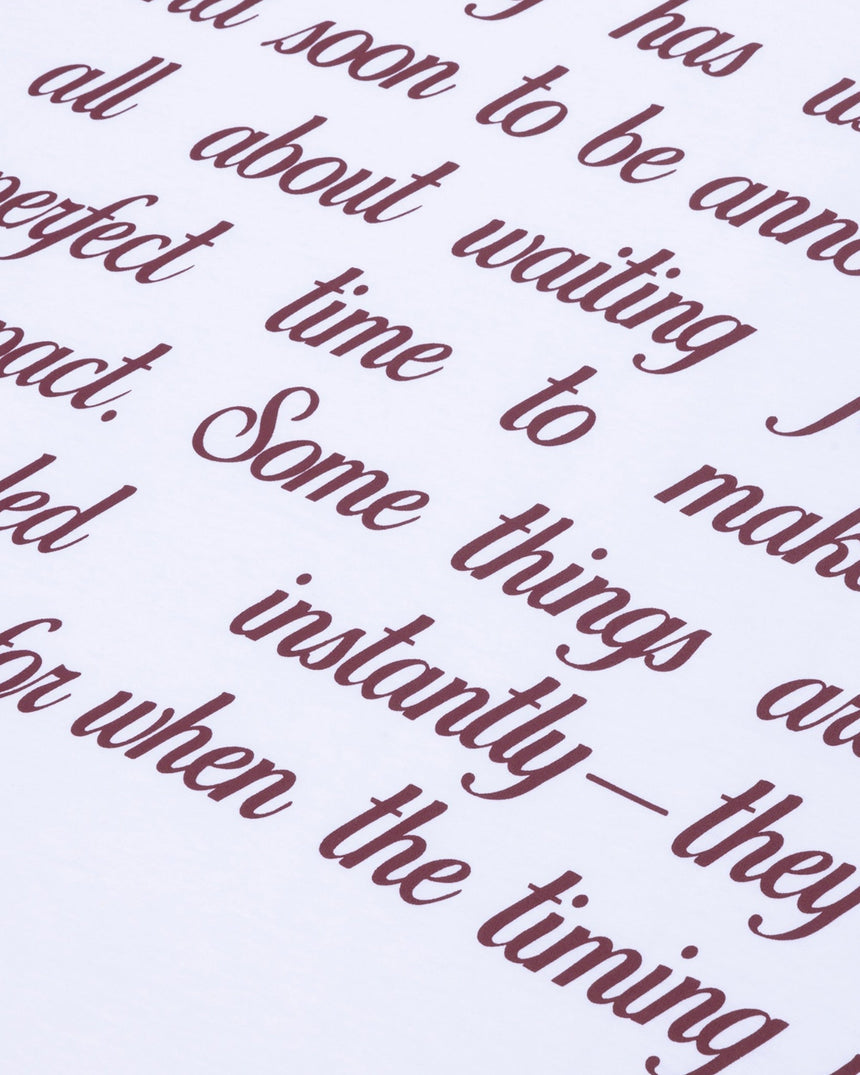 has
soon to be
all about waiting
perfect time to make
pact. Some things are
led instantly— they
for when the timing